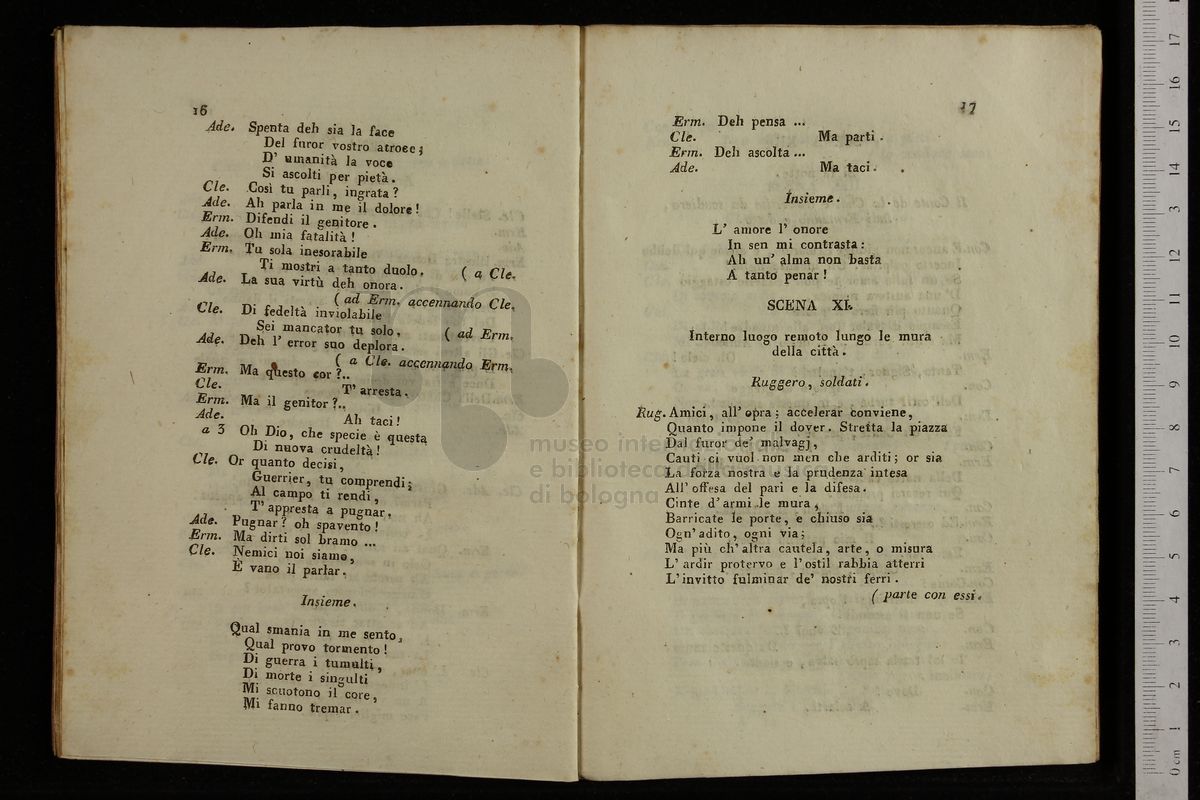 16
Ade. Spenta deh sia la face
Del furor vostro atroce;
D' umanità la voce
Si ascolti per pietà.
Cle. Così tu parli, ingrata?
Ade. Ah parla in me il dolore!
Erm. Difendi il genitore.
Ade. Oh mia fatalità!
Erm. Tu sola inesorabile
Ti mostri a tanto duolo. ( a Cle.
Ade. La sua virtù deh onora.
( ad Erm. accennando Cle.
Cle. Di fedeltà inviolabile
Sei mancator tu solo. ( ad Erm.
Ade. Deh l' error suo deplora.
( a Cle. accennando Erm.
Erm. Ma questo cor?..
Cle. T' arresta.
Erm. Ma il genitor?..
Ade. Ah taci!
a 3 Oh Dio, che specie è questa
Di nuova crudeltà!
Cle. Or quanto decisi,
Guerrier, tu comprendi;
Al campo ti rendi,
T' appresta a pugnar.
Ade. Pugnar? oh spavento!
Erm. Ma dirti sol bramo ...
Cle. Nemici noi siamo,
È vano il parlar.
Insieme.
Qual smania in me sento,
Qual provo tormento!
Di guerra i tumulti,
Di morte i singulti
Mi scuotono il core,
Mi fanno tremar.
17
Erm. Deh pensa ...
Cle. Ma parti.
Erm. Deh ascolta ...
Ade. Ma taci.
Insieme.
L' amore l' onore
In sen mi contrasta:
Ah un' alma non basta
A tanto penar!
SCENA XI.
Interno luogo remoto lungo le mura
della città.
Ruggero, soldati.
Rug. Amici, all' opra; accelerar conviene,
Quanto impone il dover. Stretta la piazza
Dal furor de' malvagj,
Cauti ci vuol non men che arditi; or sia
La forza nostra e la prudenza intesa
All' offesa del pari e la difesa.
Cinte d' armi le mura,
Barricate le porte, e chiuso sia
Ogn' adito, ogni via;
Ma più ch' altra cautela, arte, o misura
L' ardir protervo e l' ostil rabbia atterri
L' invitto fulminar de' nostri ferri.
( parte con essi.
mb
museo inte
e biblioteca
di bologna
0 cm 1 2 3 4 5 6 7 8 9 10 11 12 13 14 15 16 17